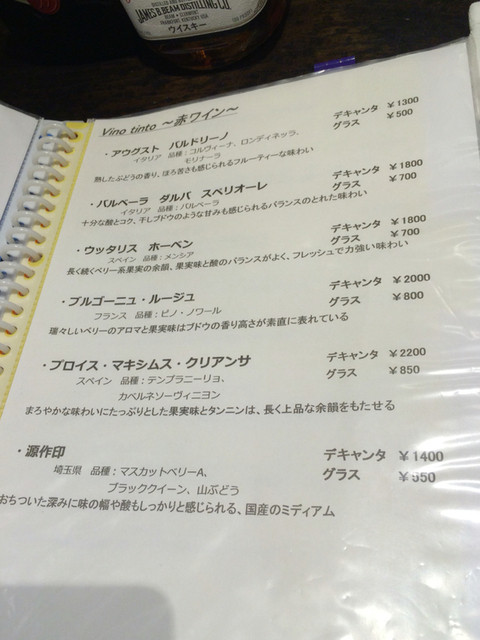 JAMES B. BEAM DISTILLING CO.
ウイスキー
Vino tinto ～赤ワイン～
・アウグスト バルドリーノ
デキャンタ ￥1300
イタリア 品種：コルヴィーナ、ロンディネッラ、
グラス ￥500
モリナーラ
熟したぶどうの香り、ほろ苦さも感じられるフルーティーな味わい
・バルベーラ ダルバ スペリオーレ
デキャンタ ￥1800
イタリア 品種：バルベーラ
グラス ￥700
十分な酸とコク、干しブドウのような甘みも感じられるバランスのとれた味わい
・ウッタリス ホーベン
デキャンタ ￥1800
スペイン 品種：メンシア
グラス ￥700
長く続くベリー系果実の余韻、果実味と酸のバランスがよく、フレッシュで力強い味わい
・ブルゴーニュ・ルージュ
デキャンタ ￥2000
フランス 品種：ピノ・ノワール
グラス ￥800
瑞々しいベリーのアロマと果実味はブドウの香り高さが素直に表れている
・プロイス・マキシムス・クリアンサ
デキャンタ ￥2200
スペイン 品種：テンプラニーリョ、
グラス ￥850
カベルネソーヴィニヨン
まろやかな味わいにたっぷりとした果実味とタンニンは、長く上品な余韻をもたせる
・源作印
デキャンタ ￥1400
埼玉県 品種：マスカットベリーA、
グラス ￥550
ブラッククイーン、山ぶどう
おちついた深みに味の幅や酸もしっかりと感じられる、国産のミディアム